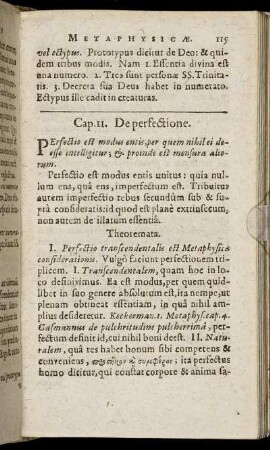 METAPHYSICÆ. 115
vel ectypus. Prototypus dicitur de Deo: & qui-
dem tribus modis. Nam 1. Essentia divina est
una numero. 2. Tres sunt personæ SS. Trinita-
tis. 3. Decreta sua Deus habet in numerato.
Ectypus ille cadit in creaturas.
Cap. 11. De perfectione.
PErfectio est modus entis, per quem nihil ei de-
esse intelligitur; & proinde est mensura alio-
rum.
Perfectio est modus entis unitus: quia nul-
lum ens, quà ens, imperfectum est. Tribuitur
autem imperfectio rebus secundùm sub & su-
prà consideratis: id quod est planè extrinsecum,
non autem de illarum essentiâ.
Theoremata.
I. Perfectio transcendentalis est Metaphysicæ
considerationis. Vulgò faciunt perfectionem tri-
plicem. I. Transcendentalem, quam hoc in loco
definivimus. Ea est modus, per quem quid-
libet in suo genere absolutum est, ita nempe, ut
plenam obtineat essentiam, in quâ nihil am-
plius desideretur. Keckerman. 1. Metaphys. cap. 4.
Casmannus de pulchritudine pulcherrimâ, per-
fectum definit id, cui nihil boni deest. II. Natu-
ralem, quâ res habet bonum sibi competens &
conveniens, ita perfectus
homo dicitur, qui constat corpore & anima sa-